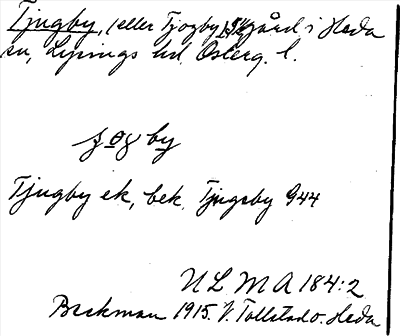 Tjugby, (eller Tjogby) gård i Heda
sn, Lysings hd. Österg. l.
jog by
Tjugby ek, bek. Tjugeby 944
ULMA 184:2
Beckman 1915. V. Tollstad o. Heda